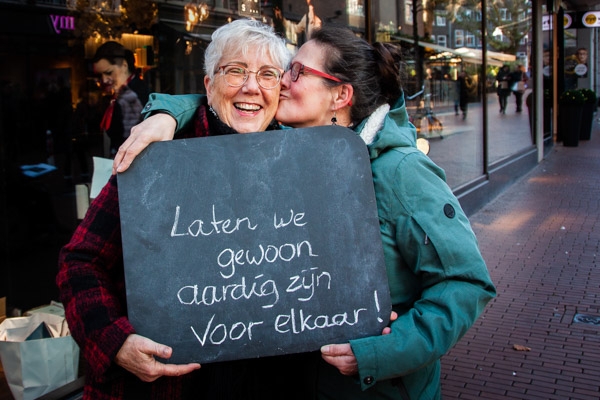 Laten we
gewoon
aardig zijn
voor elkaar!